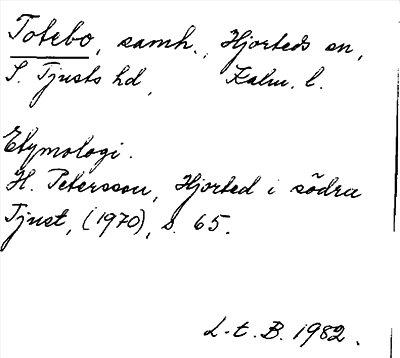 Totebo, samh., Hjorteds sn,
S. Tjusts hd, Kalm. l.
Etymologi.
H. Petersson, Hjorted i södra
Tjust, (1970), s. 65.
L-t. B. 1982.